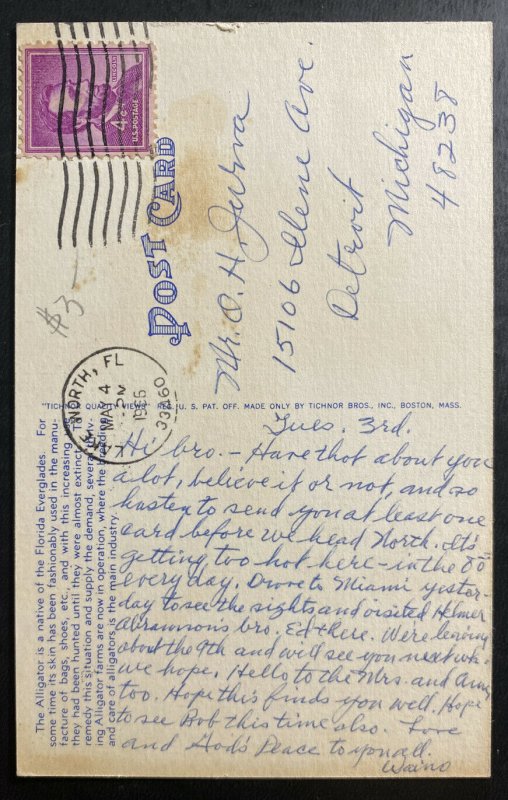 U.S. POSTAGE
4¢
POST CARD
$3-
Mr. O. H. Jurva
15106 Ilene Ave.
Detroit
Michigan
48238
NORTH, FL
MAY 4
PM
33460
"TICHNOR QUALITY VIEWS," REG. U. S. PAT. OFF. MADE ONLY BY TICHNOR BROS., INC., BOSTON, MASS.
The Alligator is a native of the Florida Everglades. For
some time its skin has been fashionably used in the manu-
facture of bags, shoes, etc., and with this increasing
they had been hunted until they were almost extinct. To
remedy this situation and supply the demand, several
ing Alligator farms are now in operation, where the breeding
and care of alligators is the main industry.
Tues. 3rd.
Hi bro. - Have thot about you
a lot, believe it or not, and so
hasten to send you at least one
card before we head North. It's
getting too hot here - in the 80°
everyday. Drove to Miami yester-
day to see the sights and visited Helmer
Abramson's bro. Ed there. We're leaving
about the 9th and will see you next wk.
we hope. Hello to the Mrs. and
too. Hope this finds you well. Hope
to see Bob this time also. Love
and God's Peace to you all.
Waino